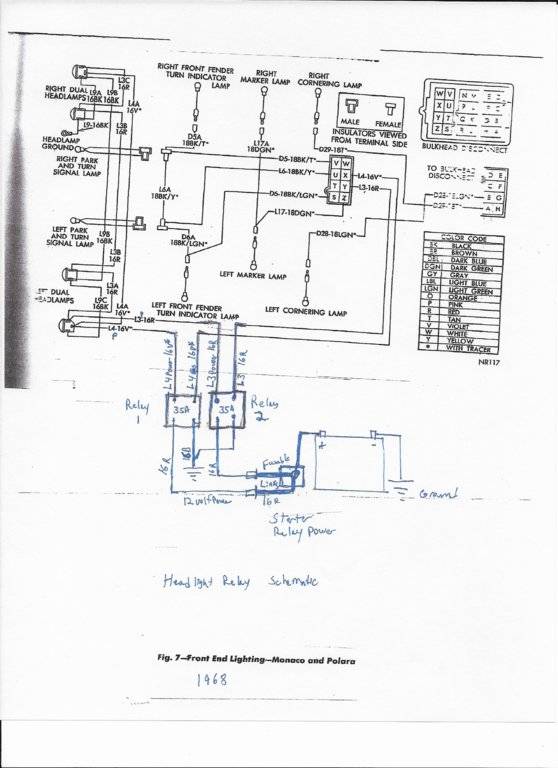 RIGHT FRONT FENDER
TURN INDICATOR
LAMP
RIGHT
MARKER LAMP
RIGHT
CORNERING LAMP
L3C
16R
RIGHT DUAL
HEADLAMPS
L9A
16BK
L9B
16BK
L4A
16V*
L9-16BK
L3B
16R
HEADLAMP
GROUND
RIGHT PARK
AND TURN
SIGNAL LAMP
D5A
18BK/T*
L17A
18DGN*
MALE
FEMALE
INSULATORS VIEWED
FROM TERMINAL SIDE
V W
X U
Y T
Z S
BULKHEAD DISCONNECT
D29-18T*
D5-18BK/T*
L6-18BK/Y*
D6-18BK/LGN*
L17-18DGN*
D28-18LGN*
V W
U X
T Y
S Z
L4-16V*
L3-16R
TO BULKHEAD
DISCONNECT
D E
C F
B G
A H
D28-18LGN*
D29-18T*
L6A
18BK/Y*
D6A
18BK/LGN*
LEFT PARK
AND TURN
SIGNAL LAMP
DUAL
HEADLAMPS
L3B
16R
L3A
16R
L9C
16BK
L4A
16V*
L3-16R
L4-16V*
LEFT FRONT FENDER
TURN INDICATOR LAMP
LEFT MARKER LAMP
LEFT CORNERING LAMP
COLOR CODE
BK BLACK
BR BROWN
DBL DARK BLUE
DGN DARK GREEN
GY GRAY
LBL LIGHT BLUE
LGN LIGHT GREEN
O ORANGE
P PINK
R RED
T TAN
V VIOLET
W WHITE
Y YELLOW
* WITH TRACER
NR117
L4 Power 16V*
L3 Power 16R
L3 16R
Relay
1
35A
35A
Relay
2
16R
16B
16R
Fusable
Link
16R
12 volt Power
+
-
Ground
Starter
Relay Power
Headlight Relay Schematic
Fig. 7—Front End Lighting—Monaco and Polara
1968